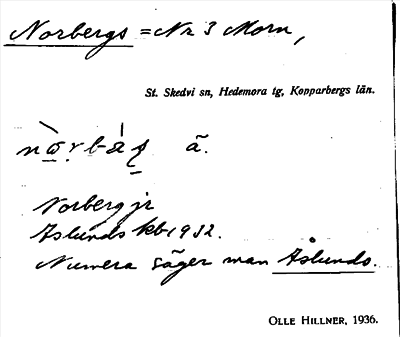 Norbergs = Nr 3 Morn,
St. Skedvi sn, Hedemora tg, Kopparbergs län.
ã.
Norberg jr
Åslunds kb 1932.
Numera säger man Åslunds.
OLLE HILLNER, 1936.